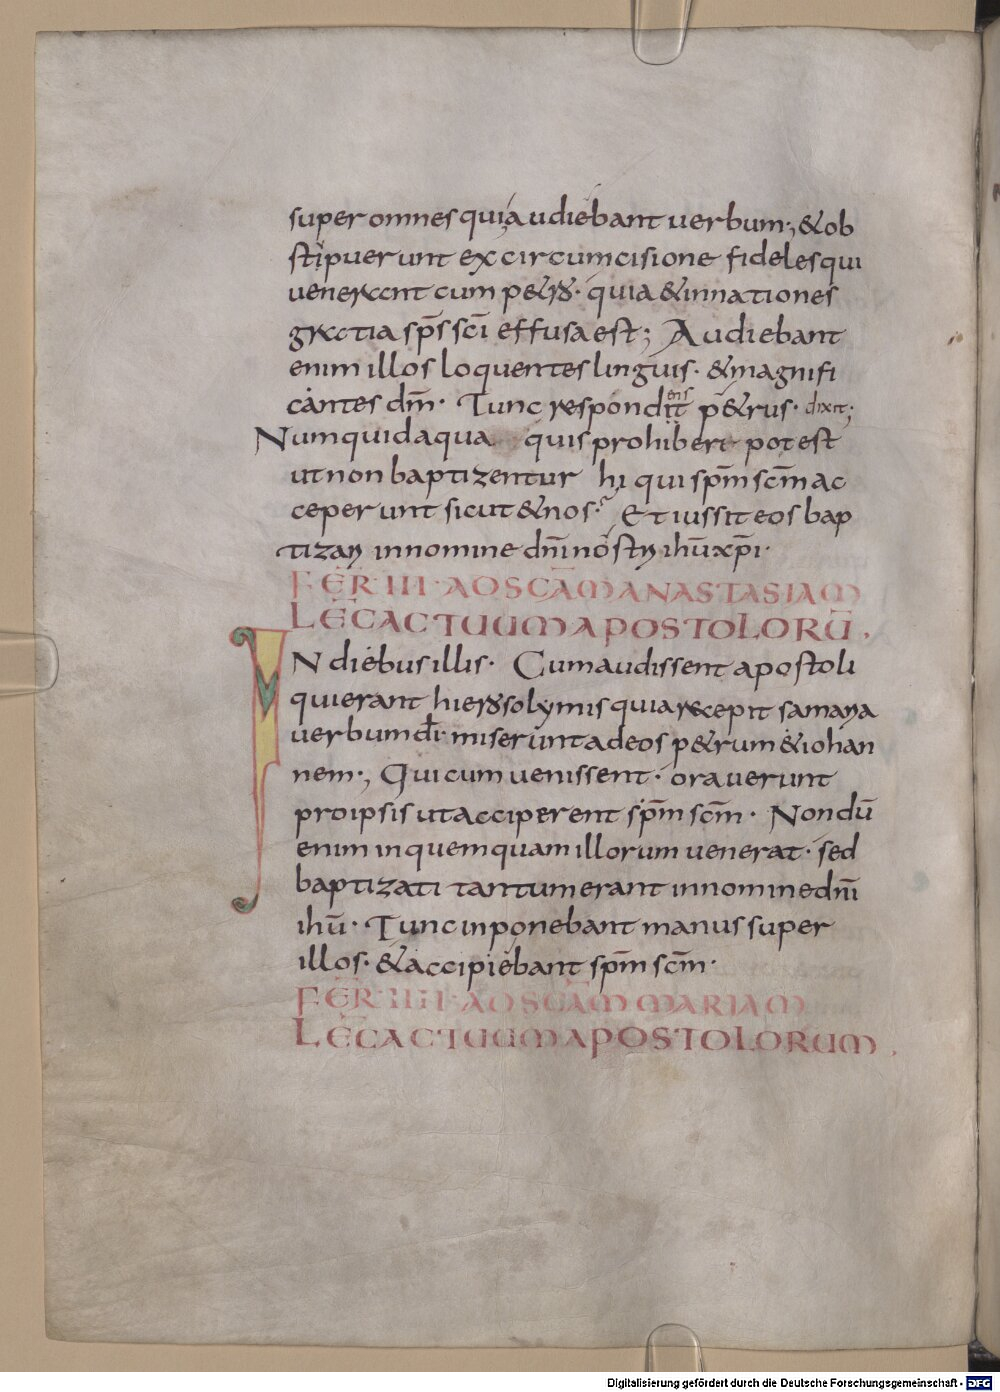 super omnes qui audiebant uerbum; & ob
stipuerunt ex circumcisione fideles qui
uenerant cum p&ro· quia & in nationes
gratia sp̄s sc̄i effusa est; Audiebant
enim illos loquentes linguis· & magnifi
cantes dm̄· Tunc respondit ens p&rus· dixit;
Numquid aqua quis prohibere potest
ut non baptizentur hi qui sp̄m sc̄m ac
ceperunt sicut & nos· Et iussit eos bap
tizari in nomine dn̄i nostri ihū xp̄i·
FĒR· III· AD SCĀM ANASTASIAM
LEC ACTUUM APOSTOLORŪ·
IN diebus illis· Cum audissent apostoli
qui erant hierosolymis quia recepit samaria
uerbum dī· miserunt ad eos p&rum & iohan
nem·, Qui cum uenissent· orauerunt
pro ipsis ut acciperent sp̄m sc̄m· Nondū
enim in quemquam illorum uenerat· sed
baptizati tantum erant in nomine dn̄i
ihū· Tunc inponebant manus super
illos· & accipiebant sp̄m sc̄m·
FĒR· IIII· AD SCĀM MARIAM
LEC ACTUUM APOSTOLORUM·
Digitalisierung gefördert durch die Deutsche Forschungsgemeinschaft - DFG